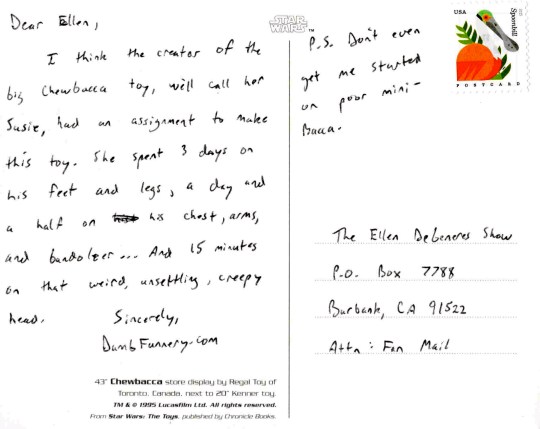 Dear Ellen,
I think the creator of the
big Chewbacca toy, we'll call her
Susie, had an assignment to make
this toy. She spent 3 days on
his feet and legs, a day and
a half on his chest, arms,
and bandoleer... And 15 minutes
on that weird, unsettling, creepy
head.
Sincerely,
DumbFunnery.com
43" Chewbacca store display by Regal Toy of
Toronto, Canada, next to 20" Kenner toy.
TM & © 1995 Lucasfilm Ltd. All rights reserved.
From Star Wars: The Toys, published by Chronicle Books.
STAR
WARS™
P.S. Don't even
get me started
on poor mini-
Bacca.
USA
Spoonbill
POSTCARD
The Ellen DeGeneres Show
P.O. Box 7788
Burbank, CA 91522
Attn: Fan Mail